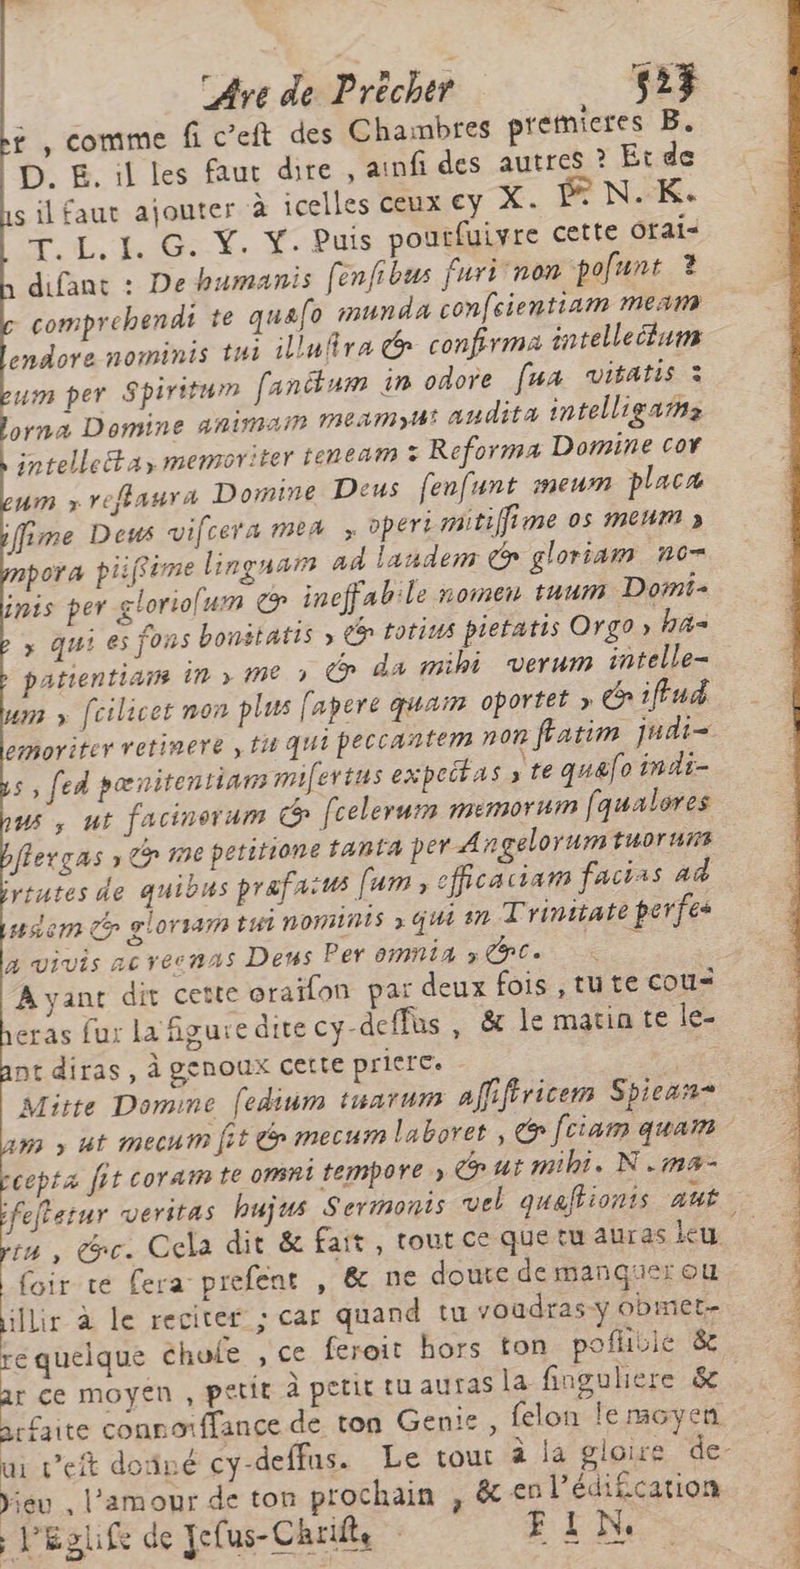 Are de Prêcher 523
et , comme ſi c'eſt des Chambres premieres B.
D. E. il les faut dire , ainſi des autres ? Et de
us il faut ajouter à icelles ceux cy X. P. N. K.
T. L. I. G. Y. Y. Puis pourſuivre cette orai-
n diſant : De humanis ſenſibus furi non poſunt ?
c comprehendi te quæſo munda conſcientiam meam
lendore nominis tui illuſtra & confirma intellectum
eum per Spiritum ſanctum in odore ſua vitatis :
lorna Domine animam meam, ut audita intelligam,
intellecta, memoriter teneam : Reforma Domine cor
eum , reſtaura Domine Deus ſenſunt meum placa
iſſime Deus viſcera mea , operi mitiſſime os meum ,
mpora piiſsime linguam ad laudem & gloriam no-
inis per glorioſum & ineffabile nomen tuum Domi-
e , qui es fons bonitatis , & totius pietatis Orgo , ha-
patientiam in , me , & da mihi verum intelle-
um , ſcilicet non plus ſapere quam oportet , & iſtud
emoriter retinere , tu qui peccantem non ſtatim judi-
as , ſed pœnitentiam miſertus expectas , te quæſo indi-
nus , ut facinorum & ſcelerum memorum ſqualores
bſtergas , & me petitione tanta per Angelorum tuorum
irtutes de quibus præfatus ſum , efficaciam facias ad
udem & gloriam tui nominis , qui in Trinitate perfe-
a vivis ac reenas Deus Per omnia , &c.
Ayant dit cette oraiſon par deux fois , tu te cou-
heras ſur la figure dite cy-deſſus , & le matin te le-
ant diras , à genoux cette priere.
Mitte Domine ſedium tuarum aſſiſtricem Spiean-
am , ut mecum ſit & mecum laboret , & ſciam quam
ccepta ſit coram te omni tempore , & ut mihi. N. ma-
ifeſtetur veritas hujus Sermonis vel quæſtionis aut
rtu , &c. Cela dit & fait , tout ce que tu auras leu
ſoir te ſera preſent , & ne doute de manquer ou
illir à le reciter ; car quand tu voudras y obmet-
re quelque choſe , ce ſeroit hors ton poſſible &
ar ce moyen , petit à petit tu auras la ſinguliere &
arfaite connoiſſance de ton Genie , ſelon le moyen
ui t'eſt donné cy-deſſus. Le tout à la gloire de
Dieu , l'amour de ton prochain , & en l'édification
l'Egliſe de Jeſus-Chriſt, F I N.